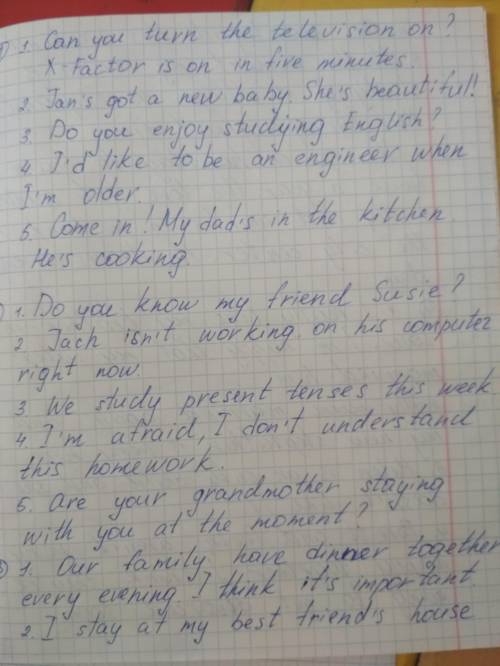 1) 1. Can you turn the television on?
X-Factor is on in five minutes.
2. Jan's got a new baby. She's beautiful!
3. Do you enjoy studying English?
4. I'd like to be an engineer when
I'm older.
5. Come in! My dad's in the kitchen.
He's cooking.
1. Do you know my friend Susie?
2. Jach isn't working on his computer
right now.
3. We study present tenses this week.
4. I'm afraid, I don't understand
this homework.
5. Are your grandmother staying
with you at the moment?
3) 1. Our family have dinner together
every evening. I think it's important
2. I stay at my best friend's house